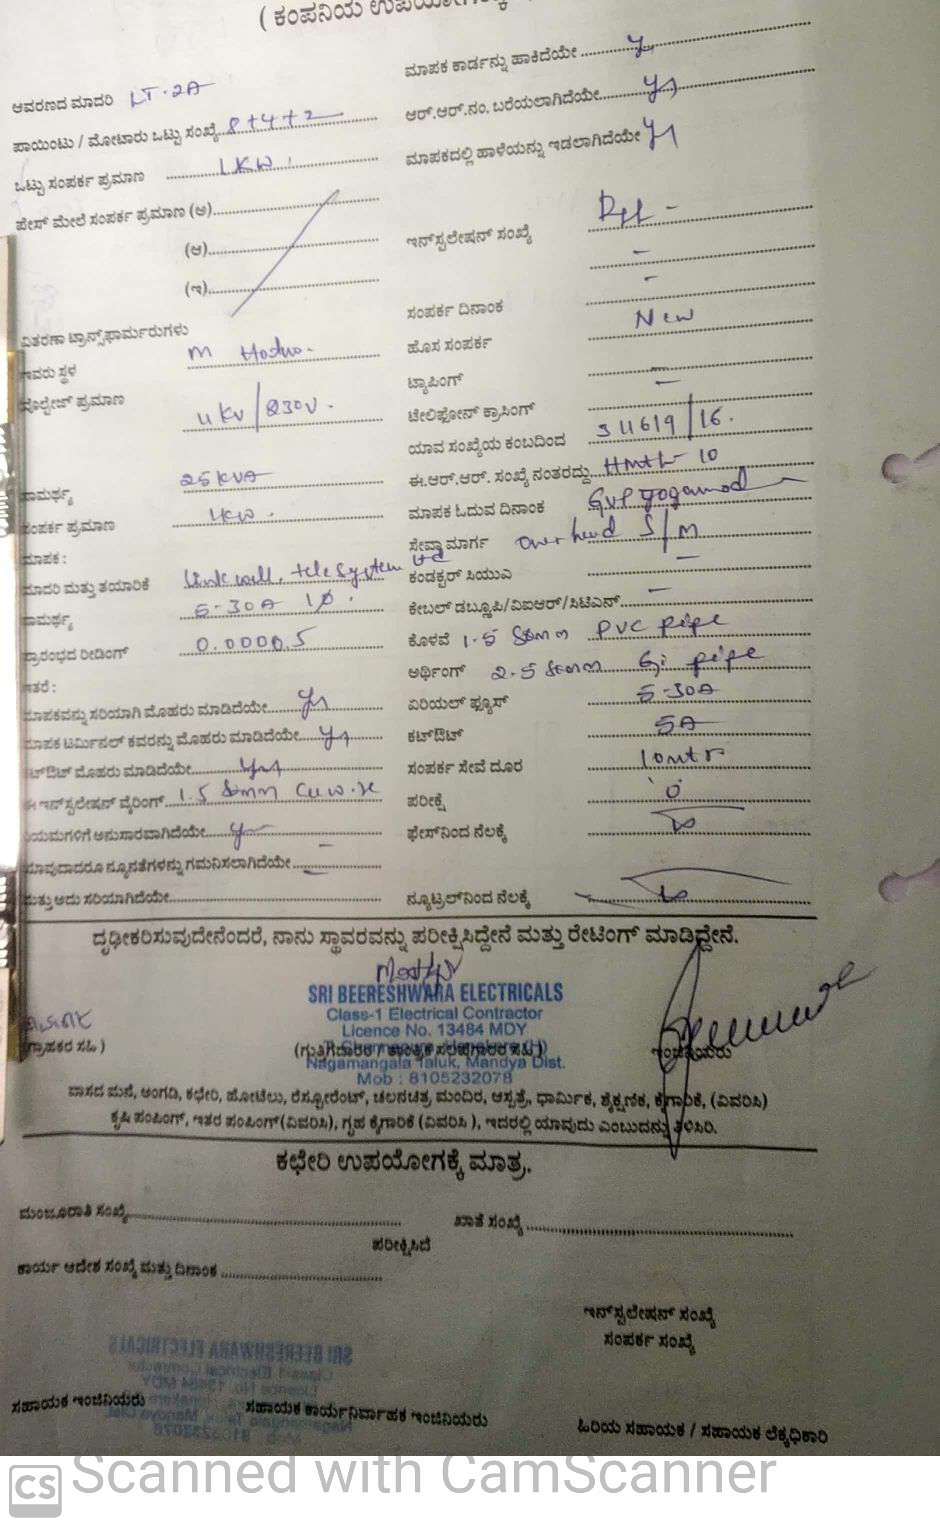 ( ಕಂಪನಿಯ ಉಪಯೋಗಕ್ಕೆ
ಮಾಪಕ ಕಾರ್ಡನ್ನು ಹಾಕಿದೆಯೇ
ಆವರಣದ ಮಾದರಿ LT-2A
ಆರ್.ಆರ್.ನಂ. ಬರೆಯಲಾಗಿದೆಯೇ
ಪಾಯಿಂಟು / ಮೋಟಾರು ಒಟ್ಟು ಸಂಖ್ಯೆ 8+4+2
ಮಾಪಕದಲ್ಲಿ ಹಾಳೆಯನ್ನು ಇಡಲಾಗಿದೆಯೇ
ಒಟ್ಟು ಸಂಪರ್ಕ ಪ್ರಮಾಣ 1KW
ಪೇಸ್ ಮೇಲೆ ಸಂಪರ್ಕ ಪ್ರಮಾಣ (ಅ)
(ಆ)
ಇನ್‌ಸ್ಟಲೇಷನ್ ಸಂಖ್ಯೆ
(ಇ)
ಸಂಪರ್ಕ ದಿನಾಂಕ -
ವಿತರಣಾ ಟ್ರಾನ್ಸ್‌ಫಾರ್ಮರುಗಳು
ಹೊಸ ಸಂಪರ್ಕ New
ಸ್ಥಳ M
ಟ್ಯಾಪಿಂಗ್
ಪ್ರಮಾಣ 11KV/230V.
ಟೇಲಿಫೋನ್ ಕ್ರಾಸಿಂಗ್ -
ಯಾವ ಸಂಖ್ಯೆಯ ಕಂಬದಿಂದ 311619/16.
ಸಾಮರ್ಥ್ಯ 25KVA
ಈ.ಆರ್.ಆರ್. ಸಂಖ್ಯೆ ನಂತರದ್ದು 10
ಸಂಪರ್ಕ ಪ್ರಮಾಣ
ಮಾಪಕ ಓದುವ ದಿನಾಂಕ
ಮಾಪಕ :
ಸೇವಾ ಮಾರ್ಗ over head S/M
ಮಾದರಿ ಮತ್ತು ತಯಾರಿಕೆ Linkwell, telesystem Ltd
ಕಂಡಕ್ಟರ್ ಸಿಯುಎ -
ಸಾಮರ್ಥ್ಯ 5-30A 1Ø.
ಕೇಬಲ್ ಡಬ್ಲೂಪಿ/ವಿಐಆರ್/ಸಿಟಿಎನ್ -
ಪ್ರಾರಂಭದ ರೀಡಿಂಗ್ 0.0000.5
ಕೊಳವೆ 1.5 PVC pipe
ಇತರೆ :
ಅರ್ಥಿಂಗ್ 2.5 Gi pipe
ಮಾಪಕವನ್ನು ಸರಿಯಾಗಿ ಮೊಹರು ಮಾಡಿದೆಯೇ ys
ಏರಿಯಲ್ ಫ್ಯೂಸ್ 5-30A
ಮಾಪಕ ಟರ್ಮಿನಲ್ ಕವರನ್ನು ಮೊಹರು ಮಾಡಿದೆಯೇ ys
ಕಟ್‌ಔಟ್ 5A
ಕಟ್‌ಔಟ್ ಮೊಹರು ಮಾಡಿದೆಯೇ yes
ಸಂಪರ್ಕ ಸೇವೆ ದೂರ 10mtr
ಈ ಇನ್‌ಸ್ಟಲೇಷನ್ ವೈರಿಂಗ್ 1.5
ಪರೀಕ್ಷೆ '0'
ನಿಯಮಗಳಿಗೆ ಅನುಸಾರವಾಗಿದೆಯೇ
ಫೇಸ್‌ನಿಂದ ನೆಲಕ್ಕೆ
ಯಾವುದಾದರೂ ನ್ಯೂನತೆಗಳನ್ನು ಗಮನಿಸಲಾಗಿದೆಯೇ
ಮತ್ತು ಅದು ಸರಿಯಾಗಿದೆಯೇ
ನ್ಯೂಟ್ರಲ್‌ನಿಂದ ನೆಲಕ್ಕೆ
ದೃಢೀಕರಿಸುವುದೇನೆಂದರೆ, ನಾನು ಸ್ಥಾವರವನ್ನು ಪರೀಕ್ಷಿಸಿದ್ದೇನೆ ಮತ್ತು ರೇಟಿಂಗ್ ಮಾಡಿದ್ದೇನೆ.
SRI BEERESHWARA ELECTRICALS
Class-1 Electrical Contractor
Licence No. 13484 MDY
(ಗ್ರಾಹಕರ ಸಹಿ )
ಇಂಜಿನಿಯರು
Nagamangala Taluk, Mandya Dist.
Mob : 8105232078
ವಾಸದ ಮನೆ, ಅಂಗಡಿ, ಕಛೇರಿ, ಹೋಟೆಲು, ರೆಸ್ಟೋರೆಂಟ್, ಚಲನಚಿತ್ರ ಮಂದಿರ, ಆಸ್ಪತ್ರೆ, ಧಾರ್ಮಿಕ, ಶೈಕ್ಷಣಿಕ, ಕೈಗಾರಿಕೆ, (ವಿವರಿಸಿ)
ಕೃಷಿ ಪಂಪಿಂಗ್, ಇತರ ಪಂಪಿಂಗ್ (ವಿವರಿಸಿ), ಗೃಹ ಕೈಗಾರಿಕೆ (ವಿವರಿಸಿ ), ಇದರಲ್ಲಿ ಯಾವುದು ಎಂಬುದನ್ನು ತಿಳಿಸಿರಿ.
ಕಛೇರಿ ಉಪಯೋಗಕ್ಕೆ ಮಾತ್ರ.
ಮಂಜೂರಾತಿ ಸಂಖ್ಯೆ
ಖಾತೆ ಸಂಖ್ಯೆ
ಪರೀಕ್ಷಿಸಿದೆ
ಕಾರ್ಯ ಆದೇಶ ಸಂಖ್ಯೆ ಮತ್ತು ದಿನಾಂಕ
ಇನ್‌ಸ್ಟಲೇಷನ್ ಸಂಖ್ಯೆ
ಸಂಪರ್ಕ ಸಂಖ್ಯೆ
ಸಹಾಯಕ ಇಂಜಿನಿಯರು
ಸಹಾಯಕ ಕಾರ್ಯನಿರ್ವಾಹಕ ಇಂಜಿನಿಯರು
ಹಿರಿಯ ಸಹಾಯಕ / ಸಹಾಯಕ ಲೆಕ್ಕಧಿಕಾರಿ
CS Scanned with CamScanner